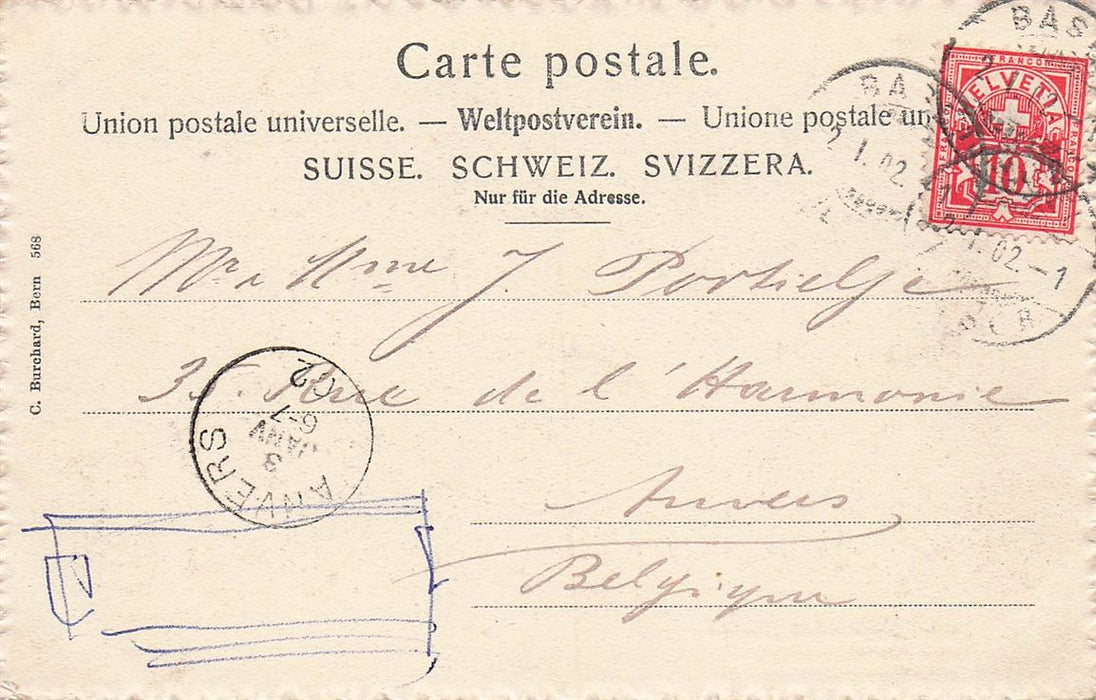 Carte postale.
Union postale universelle. — Weltpostverein. — Unione postale un
SUISSE. SCHWEIZ. SVIZZERA.
Nur für die Adresse.
FRANCO
HELVETIA
FRANCO
FRANCO
10
BAS
BA
2.I.02
2.I.02.-1
C. Burchard, Bern 568
Mr & Mme J. Portielje
35. Rue de l'Harmonie
Anvers
Belgique
ANVERS
3
JANV
6-7
02